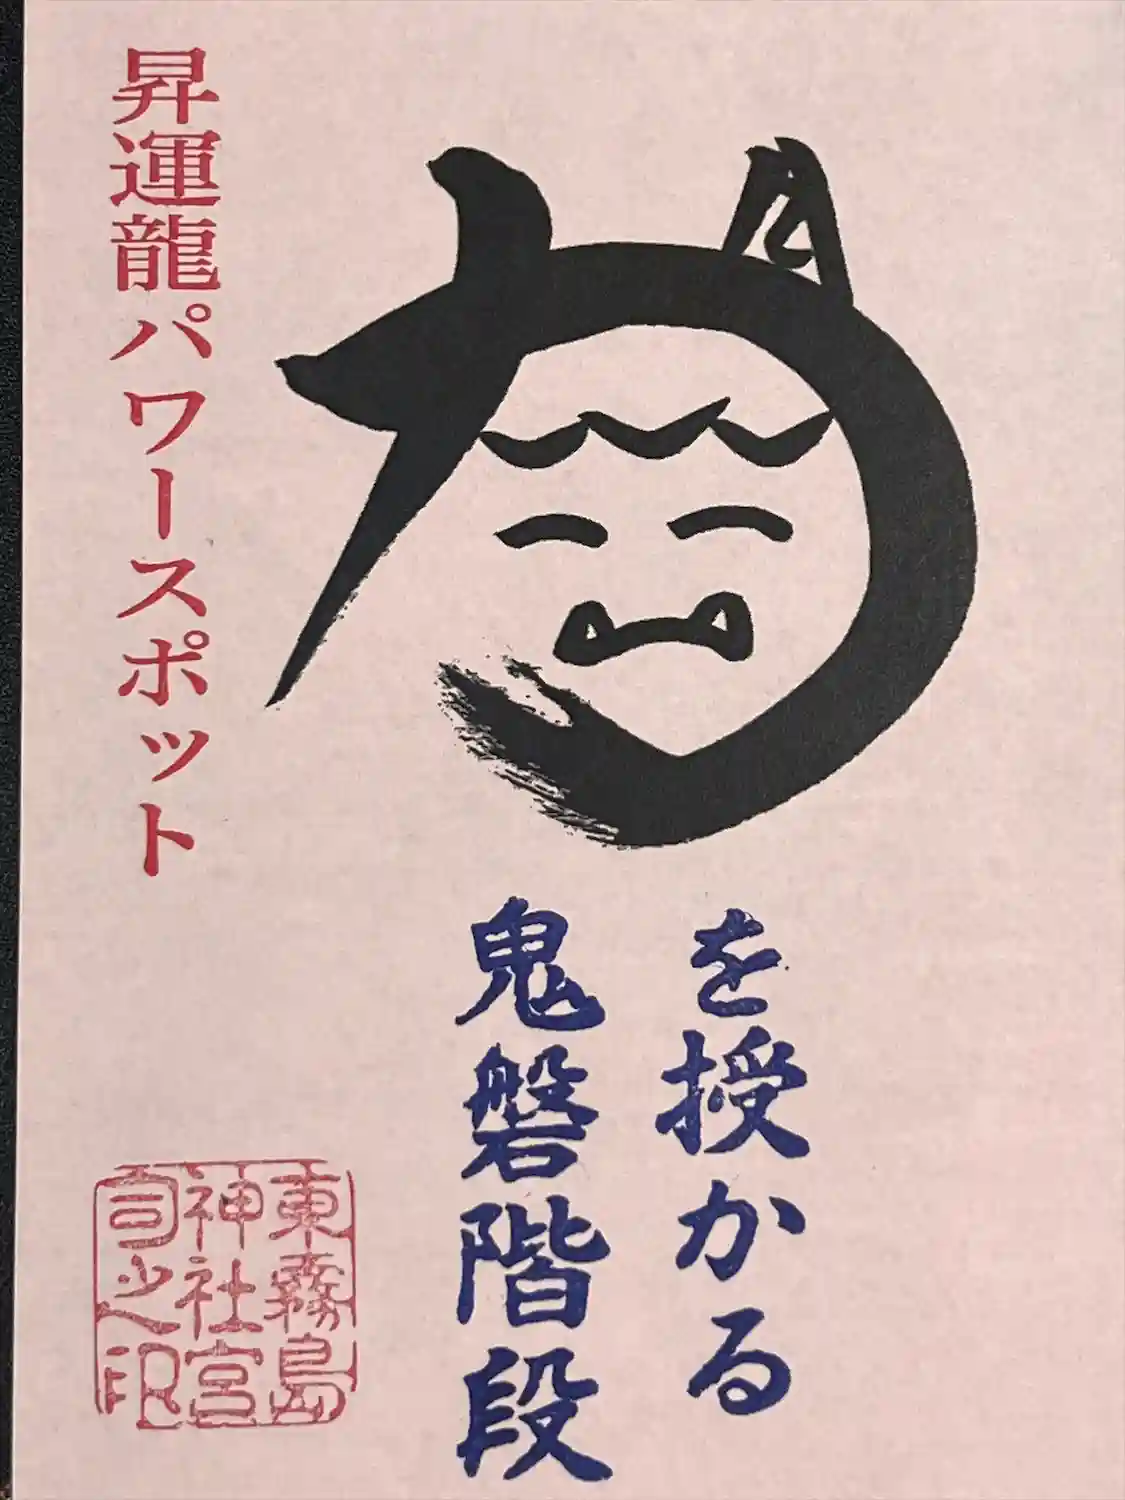 を授かる
鬼磐階段
昇運龍パワースポット
東霧島
神社宮
司之印